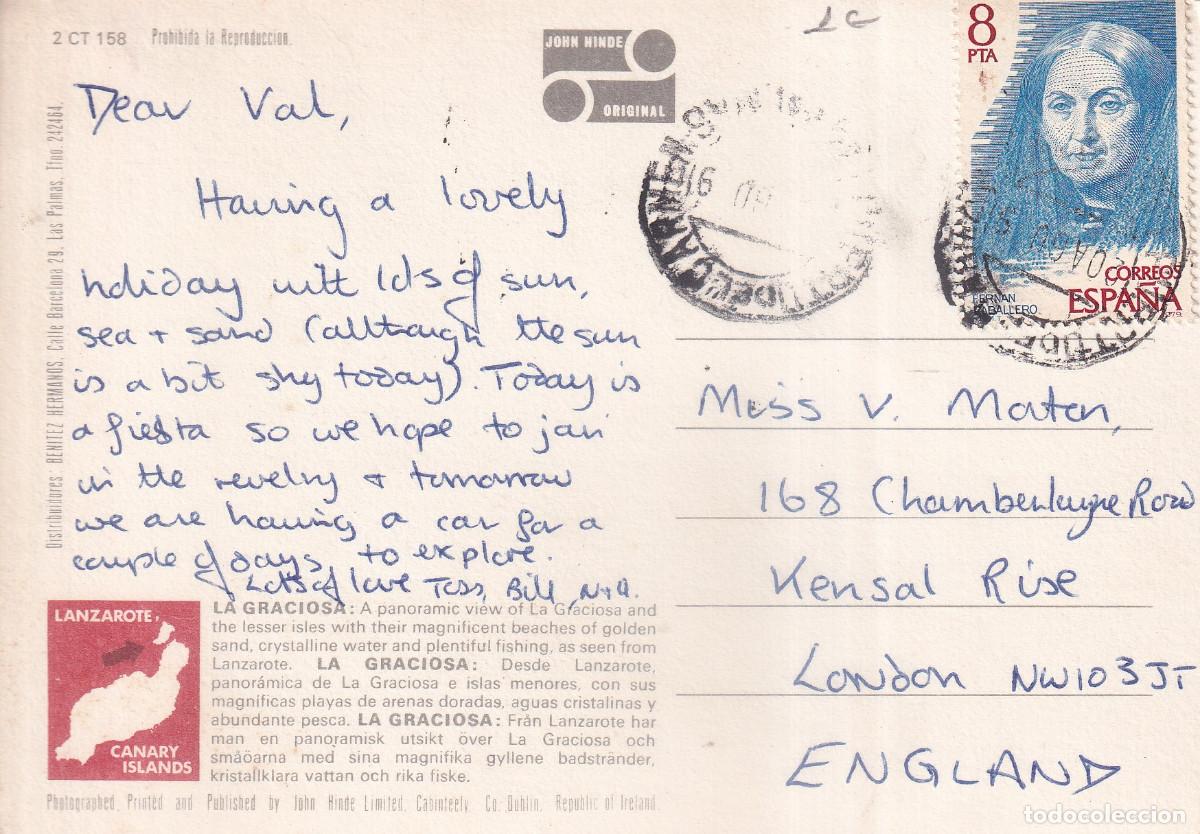 2 CT 158 Prohibida la Reproduccion.
JOHN HINDE
ORIGINAL
8
PTA
CORREOS
ESPAÑA
FERNAN
CABALLERO
Distribuidores: BENITEZ HERMANOS, Calle Barcelona 29, Las Palmas, Tfno. 242464.
Dear Val,
Having a lovely
holiday with lots of sun,
sea + sand (although the sun
is a bit shy today). Today is
a fiesta so we hope to join
in the revelry + tomorrow
we are having a car for a
couple of days to explore.
Lots of love Tass, Bill, N+A.
Miss V. Maton,
168 Chamberlayne Road
Kensal Rise
London NW10 3JT
ENGLAND
LANZAROTE,
CANARY
ISLANDS
LA GRACIOSA: A panoramic view of La Graciosa and
the lesser isles with their magnificent beaches of golden
sand, crystalline water and plentiful fishing, as seen from
Lanzarote. LA GRACIOSA: Desde Lanzarote,
panorámica de La Graciosa e islas menores, con sus
magníficas playas de arenas doradas, aguas cristalinas y
abundante pesca. LA GRACIOSA: Från Lanzarote har
man en panoramisk utsikt över La Graciosa och
småöarna med sina magnifika gyllene badstränder,
kristallklara vattan och rika fiske.
Photographed, Printed and Published by John Hinde Limited, Cabinteely, Co. Dublin, Republic of Ireland.
todocoleccion